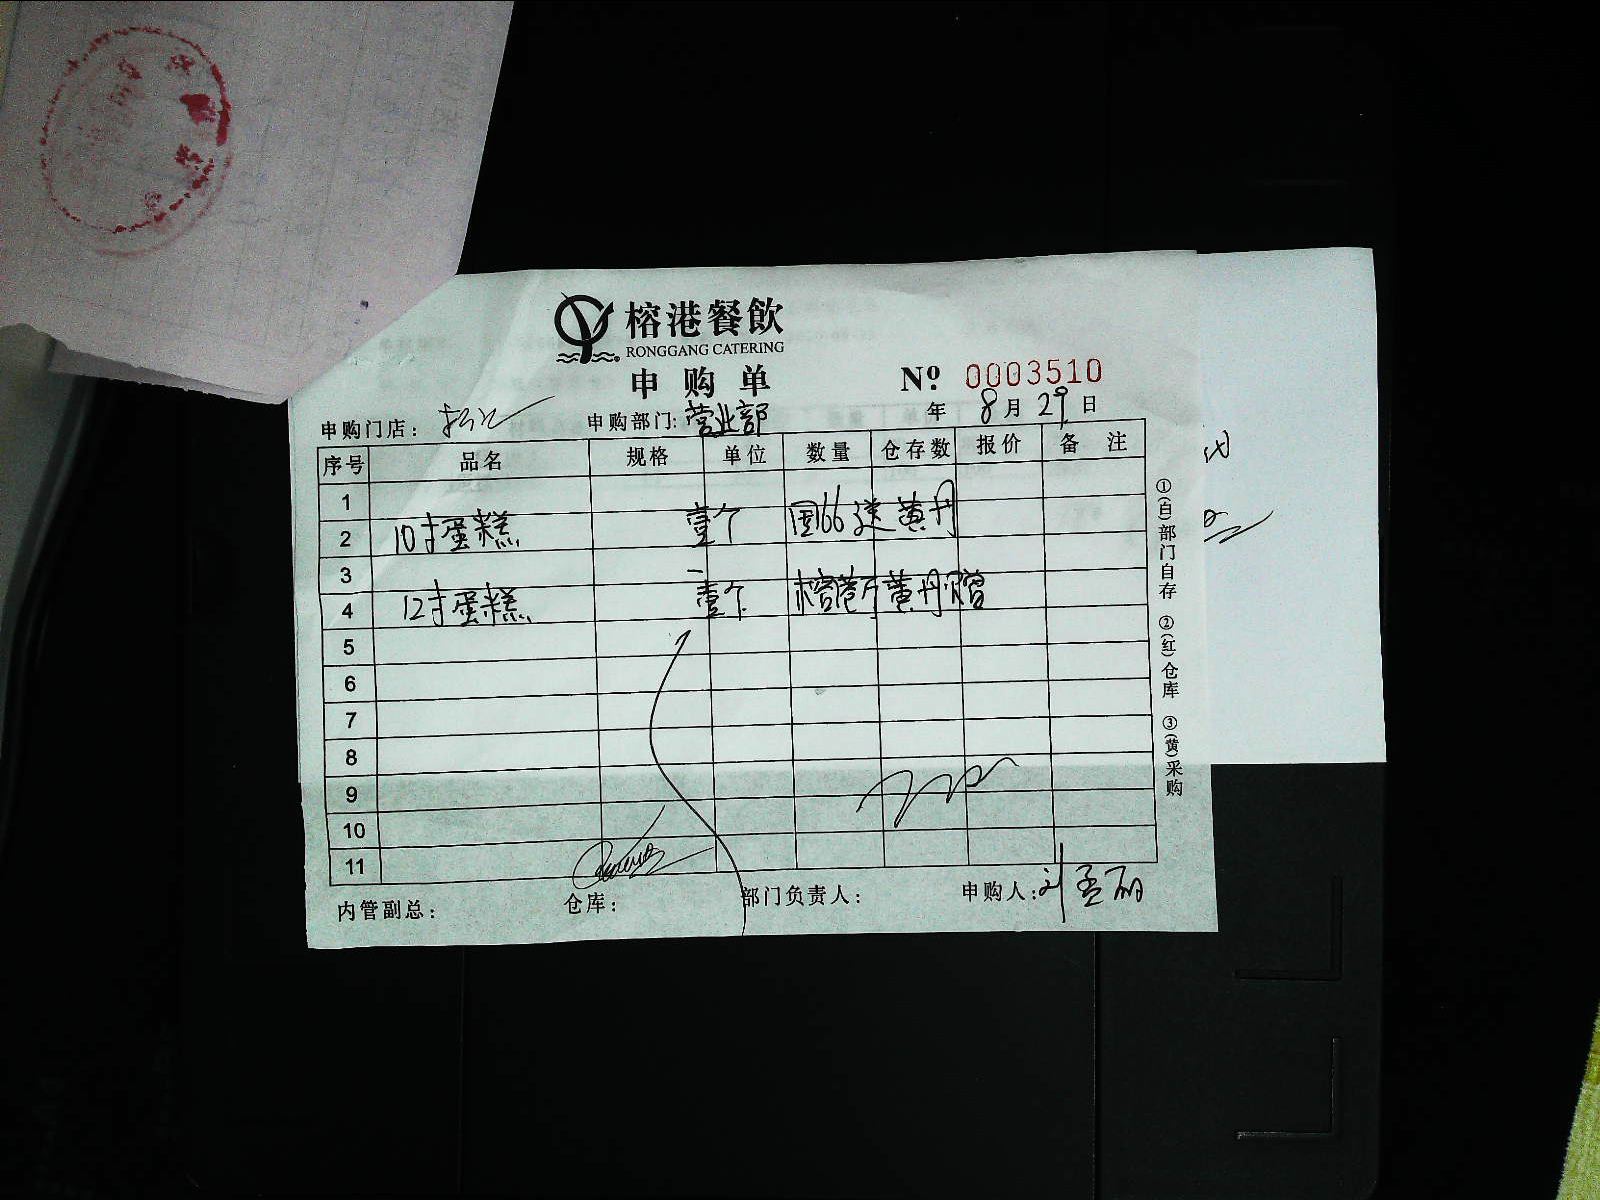 榕港餐飲
RONGGANG CATERING
申购单 Nº 0003510
申购门店： 申购部门:营业部 年 8月29日
序号 品名 规格 单位 数量 仓存数 报价 备注
1
2 10寸蛋糕 壹个 国66送黄丹
3
4 12寸蛋糕 壹个 榕港厅黄丹赠
5
6
7
8
9
10
11
内管副总： 仓库： 部门负责人： 申购人:刘孟丽
①(白)部门自存 ②(红)仓库 ③(黄)采购